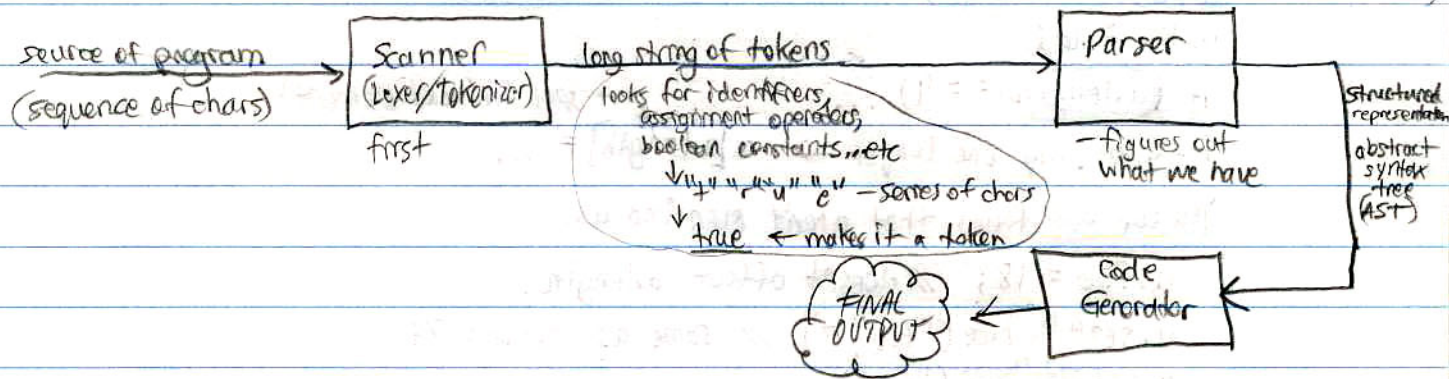 source of program
(sequence of chars)
Scanner
(Lexer/tokenizer)
first
long string of tokens
looks for identifiers,
assignment operators,
boolean constants...etc
↓ "t" "r" "u" "e" - series of chars
↓
true ← makes it a token
Parser
- figures out
what we have
structured
representation
abstract
syntax
tree
(AST)
Code
Generator
FINAL
OUTPUT